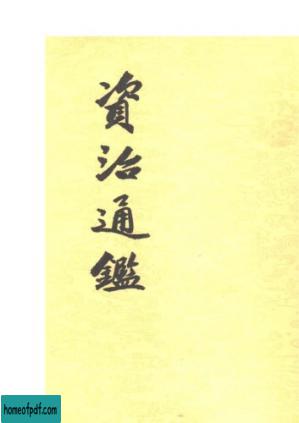 資治通鑑
homeofpdf.com